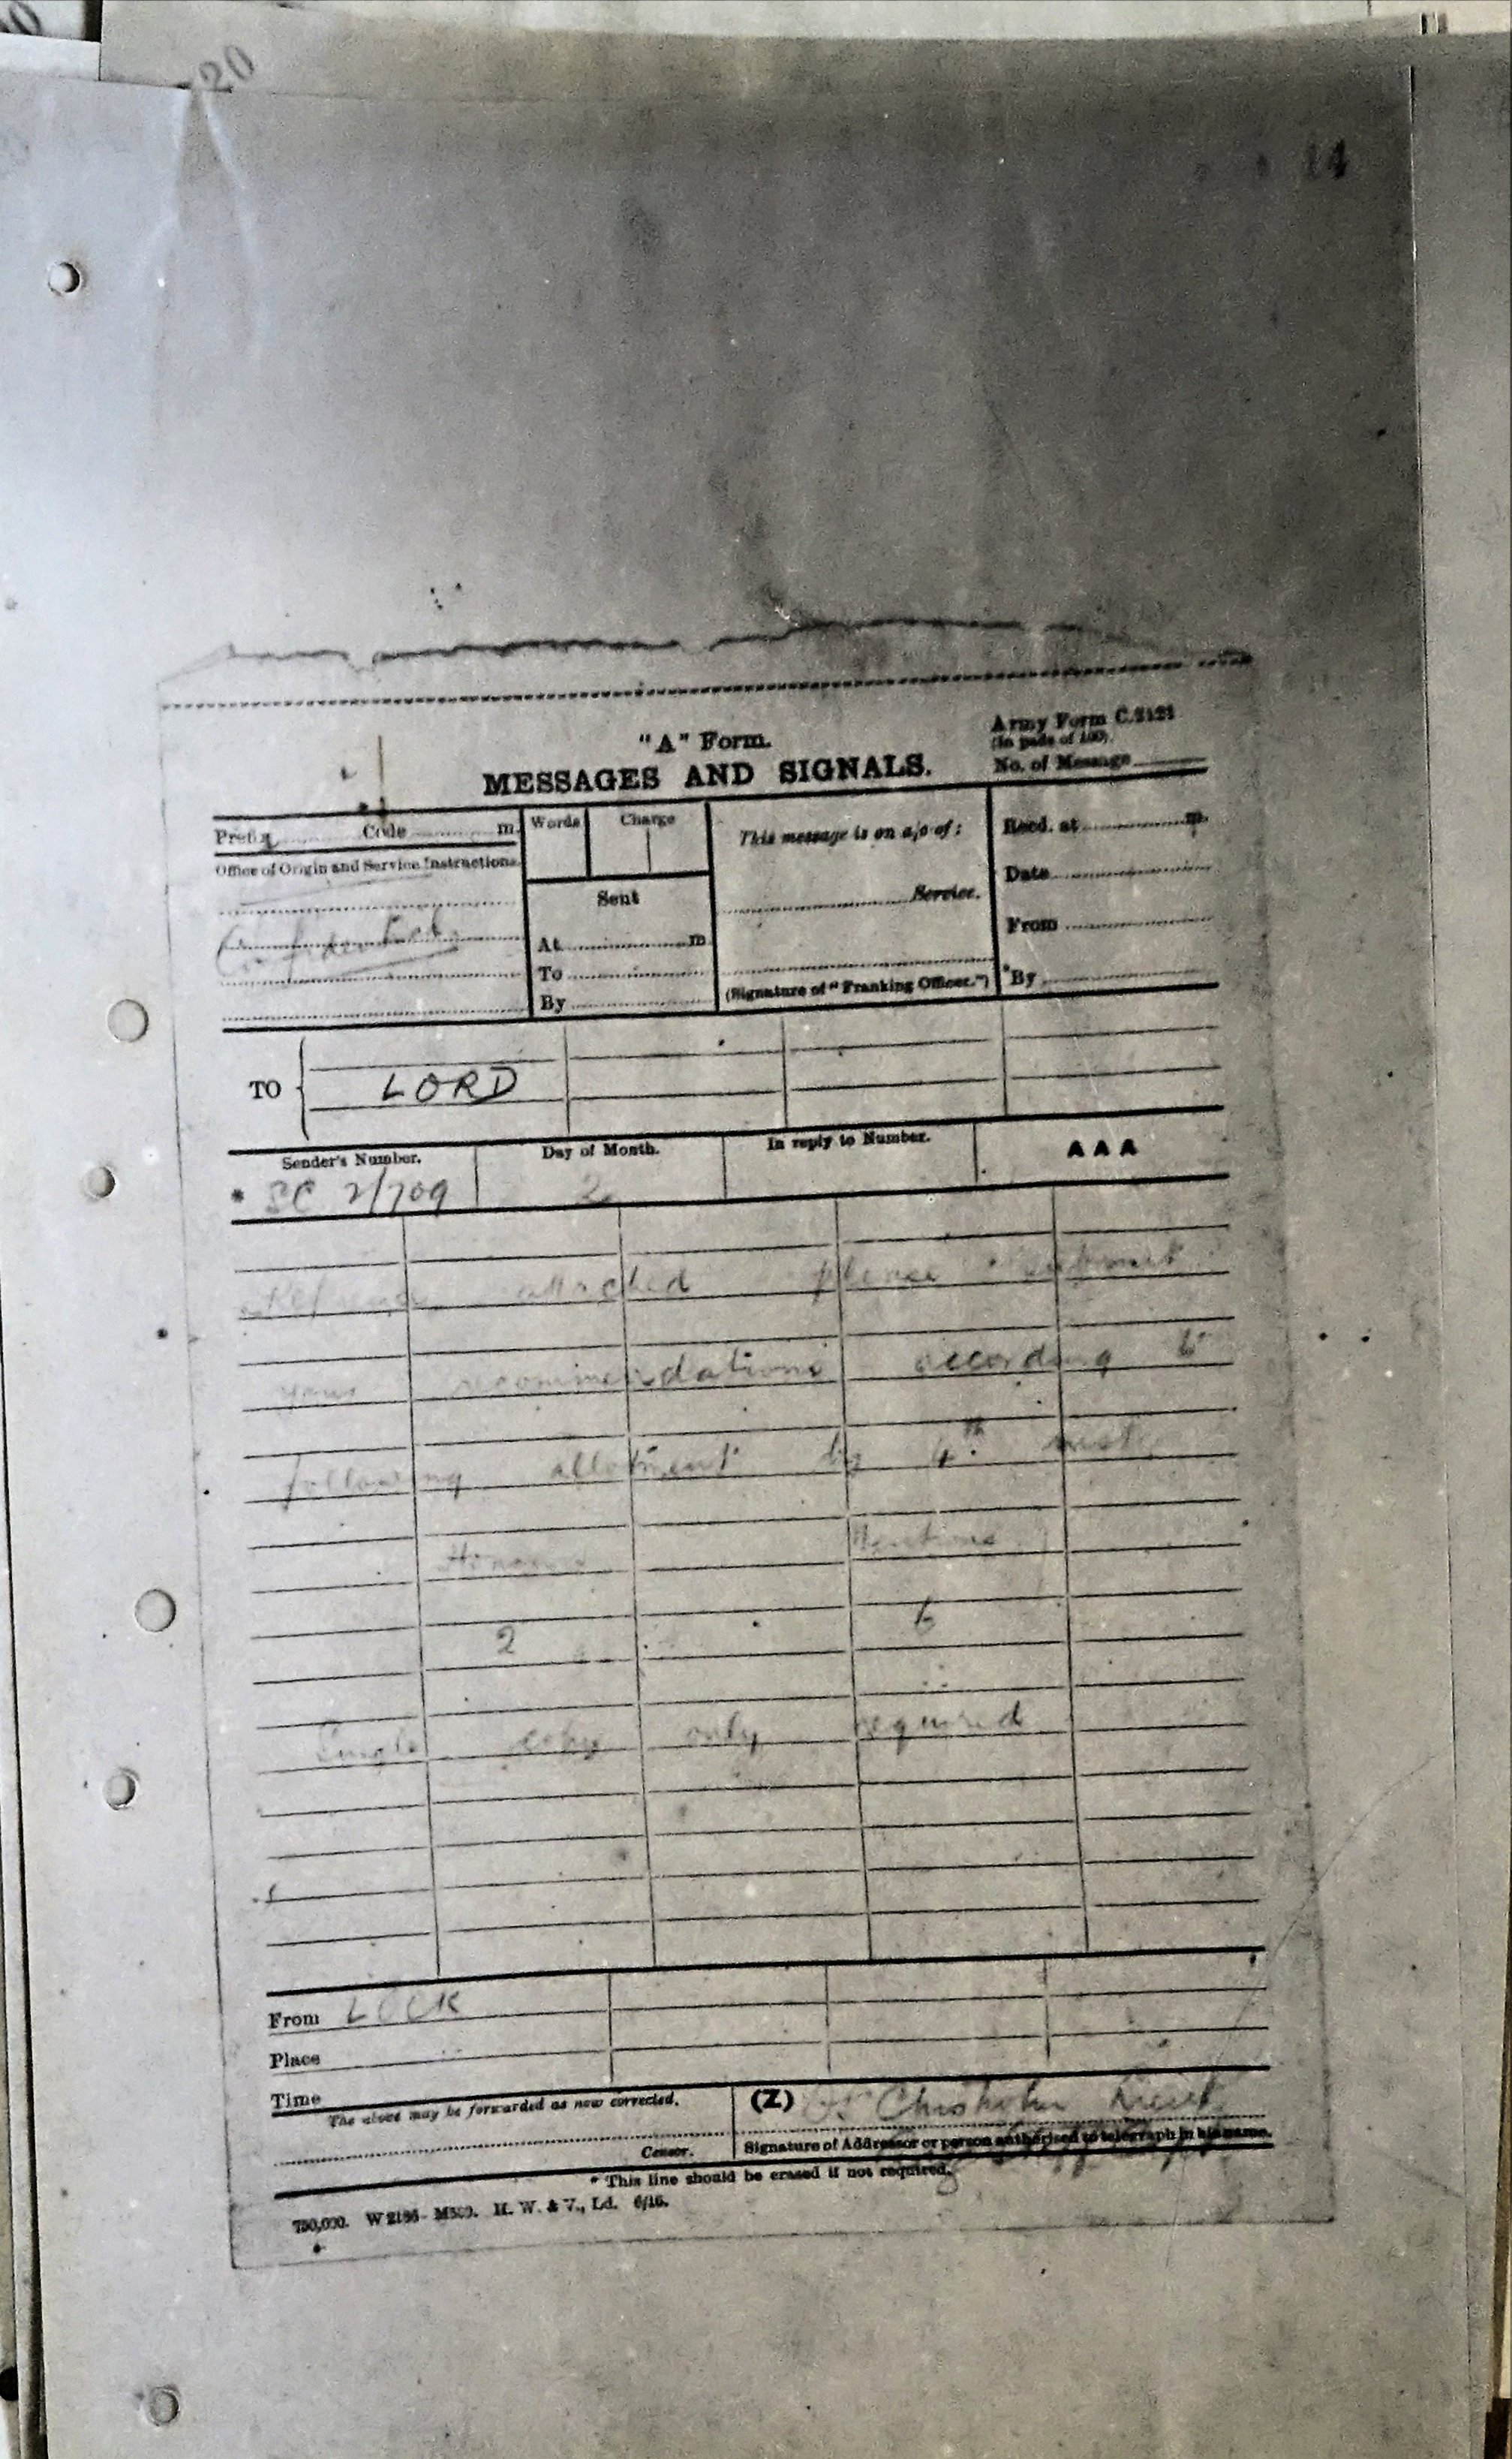 20
14
"A" Form.
Army Form C.2121
(In pads of 100).
MESSAGES AND SIGNALS.
No. of Message
Prefix Code m.
Words Charge
This message is on a/c of:
Recd. at m.
Office of Origin and Service Instructions.
Sent
Service.
Date
Confidential
At m.
From
To
By
(Signature of "Franking Officer.")
By
TO LORD
Sender's Number. Day of Month. In reply to Number. AAA
* SC 2/709 2
Reference attached please submit
your recommendations according to
following allotment by 4th inst.
Honours Mentions
2 6
Single copy only required
From LOCK
Place
Time
The above may be forwarded as now corrected. (Z) Chisholm Lieut
Censor. Signature of Addressor or person authorised to telegraph in his name.
* This line should be erased if not required.
750,000. W 2186- M509. H. W. & V., Ld. 6/16.